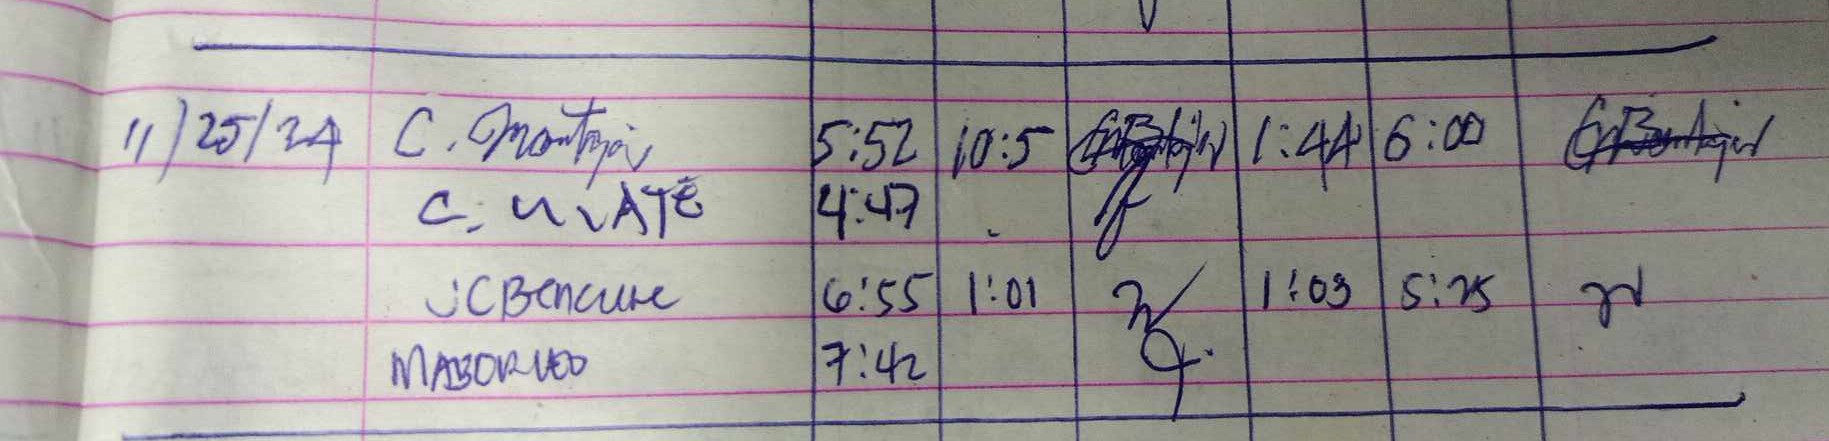 11/25/24 C. Montejar 5:52 10:5 1:44 6:00
C. UVATE 4:47
JC Bencure 6:55 1:01 1:03 5:25
7:42